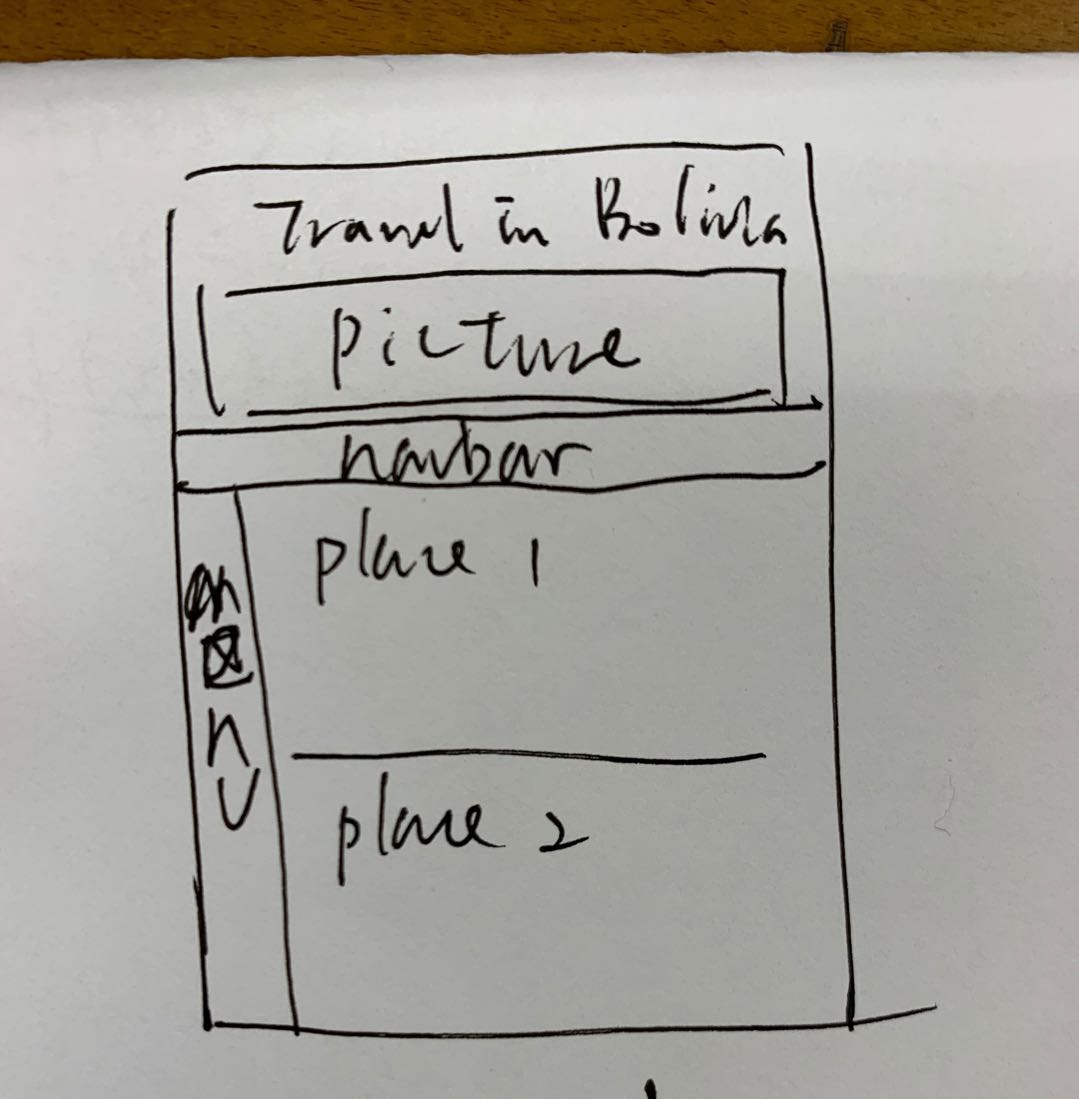 Travel in Bolivia
picture
navbar
place 1
m
n
u
place 2